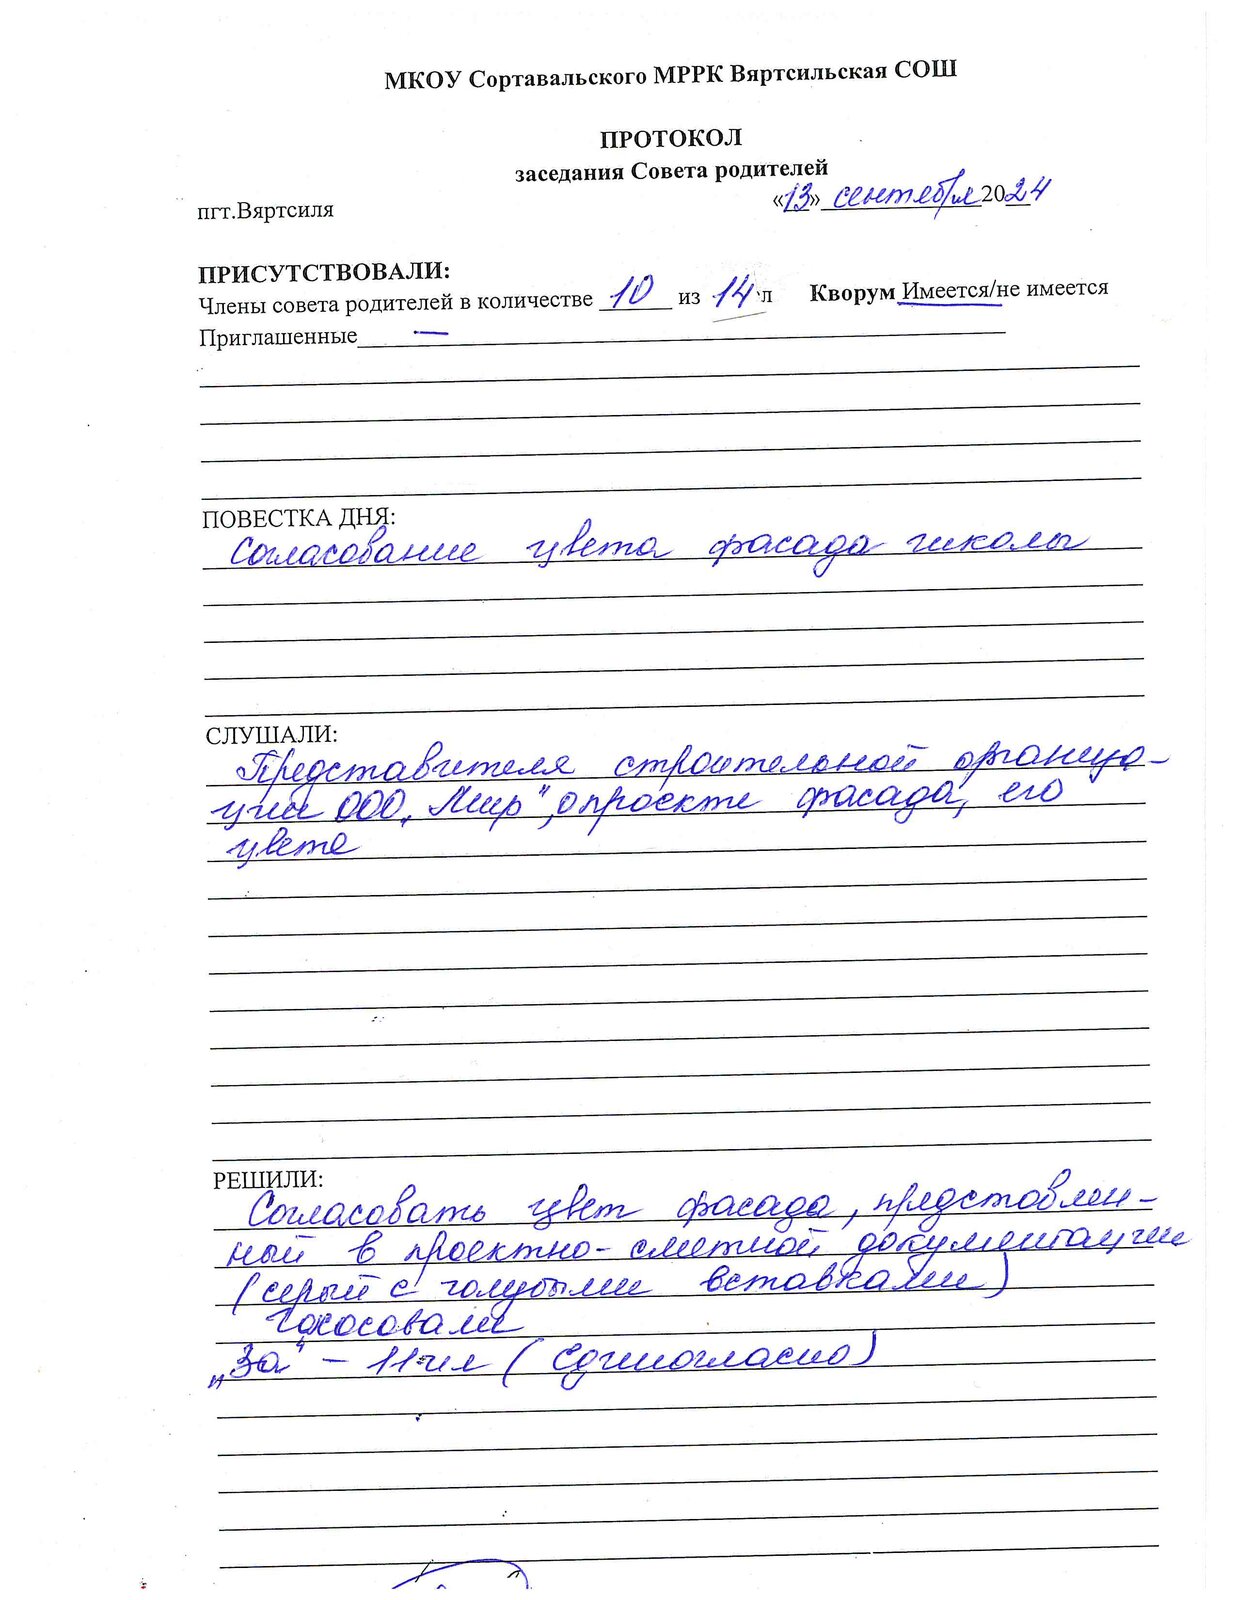 МКОУ Сортавальского МРРК Вяртсильская СОШ
ПРОТОКОЛ
заседания Совета родителей
пгт.Вяртсиля «13» сентября 2024
ПРИСУТСТВОВАЛИ:
Члены совета родителей в количестве 10 из 14 л Кворум Имеется/не имеется
Приглашенные —
ПОВЕСТКА ДНЯ:
Согласование цвета фасада школы
СЛУШАЛИ:
Представителя строительной организа-
ции ООО „Мир", о проекте фасада, его
цвете
РЕШИЛИ:
Согласовать цвет фасада, представлен-
ный в проектно-сметной документации
(серый с голубыми вставками)
Голосовали
„За" – 11 чл (единогласно)